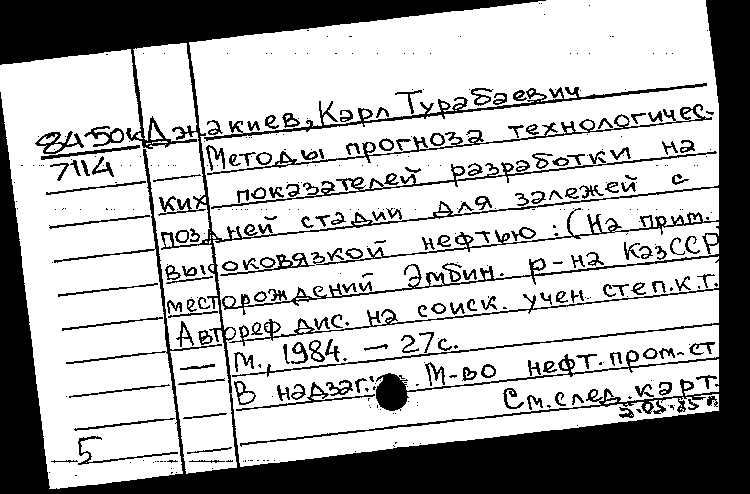 84-50к Джакиев, Карл Турабаевич
7114 Методы прогноза технологичес-
ких показателей разработки на
поздней стадии для залежей с
высоковязкой нефтью: (На прим.
месторождений Эмбин. р-на КазССР)
Автореф. дис. на соиск. учен. степ. к.т.
— М., 1984. — 27с.
В надзаг.: М-во нефт. пром-ст
См. след. карт.
5